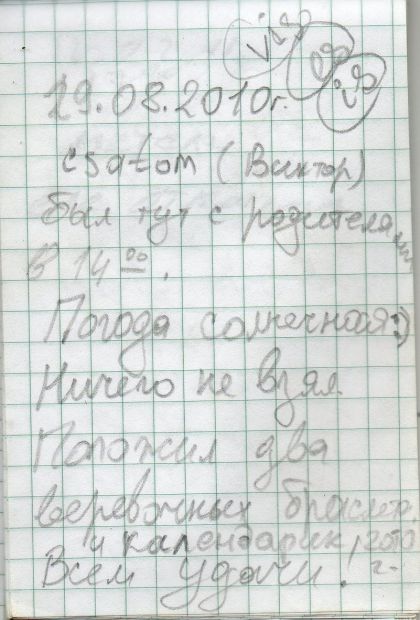 19.08.2010г.
csatom (Виктор)
был тут с родителями
в 14 00.
Погода солнечная:)
Ничего не взял
Положил два
веревочных браслета
и календарик, 2010
Всем удачи! г.